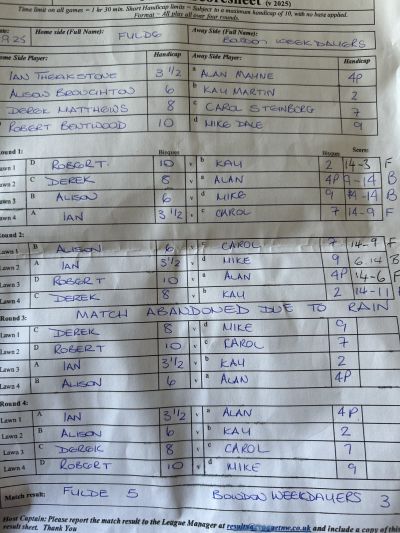 Scoresheet (v 2025)
Time limit on all games = 1 hr 30 min. Short Handicap limits = Subject to a maximum handicap of 10, with no base applied.
Format – All play all over four rounds.
9.25 Home side (Full Name): FULDE Away Side (Full Name): BOWDON WEEKDAYERS
Home Side Player: Handicap Away Side Player: Handicap
IAN THERKETONE 3 1/2 a ALAN MAYNE 4P
ALISON BROUGHTON 6 b KAY MARTIN 2
DEREK MATTHEWS 8 c CAROL STEINBERG 7
ROBERT BENTWOOD 10 d MIKE DALE 9
Round 1: Bisques Bisques Score:
Lawn 1 D ROBERT. 10 v b KAY 2 14-3 F
Lawn 2 C DEREK 8 v a ALAN 4P 9-14 B
Lawn 3 B ALISON 6 v d MIKE 9 -14 B
Lawn 4 A IAN 3 1/2 v c CAROL 7 14-9 F
Round 2:
Lawn 1 B ALISON 6 v c CAROL 7 14-9 F
Lawn 2 A IAN 3 1/2 v d MIKE 9 6.14 B
Lawn 3 D ROBERT 10 v a ALAN 4P 14-6 F
Lawn 4 C DEREK 8 v b KAY 2 14-11 F
Round 3: MATCH ABANDONED DUE TO RAIN
Lawn 1 C DEREK 8 v d MIKE 9
Lawn 2 D ROBERT 10 v c CAROL 7
Lawn 3 A IAN 3 1/2 v b KAY 2
Lawn 4 B ALISON 6 v a ALAN 4P
Round 4:
Lawn 1 A IAN 3 1/2 v a ALAN 4P
Lawn 2 B ALISON 6 v b KAY 2
Lawn 3 C DEREK 8 v c CAROL 7
Lawn 4 D ROBERT 10 v d MIKE 9
Match result: FULDE 5 BOWDON WEEKDAYERS 3
Host Captain: Please report the match result to the League Manager at results@croquetnw.co.uk and include a copy of this
result sheet. Thank You